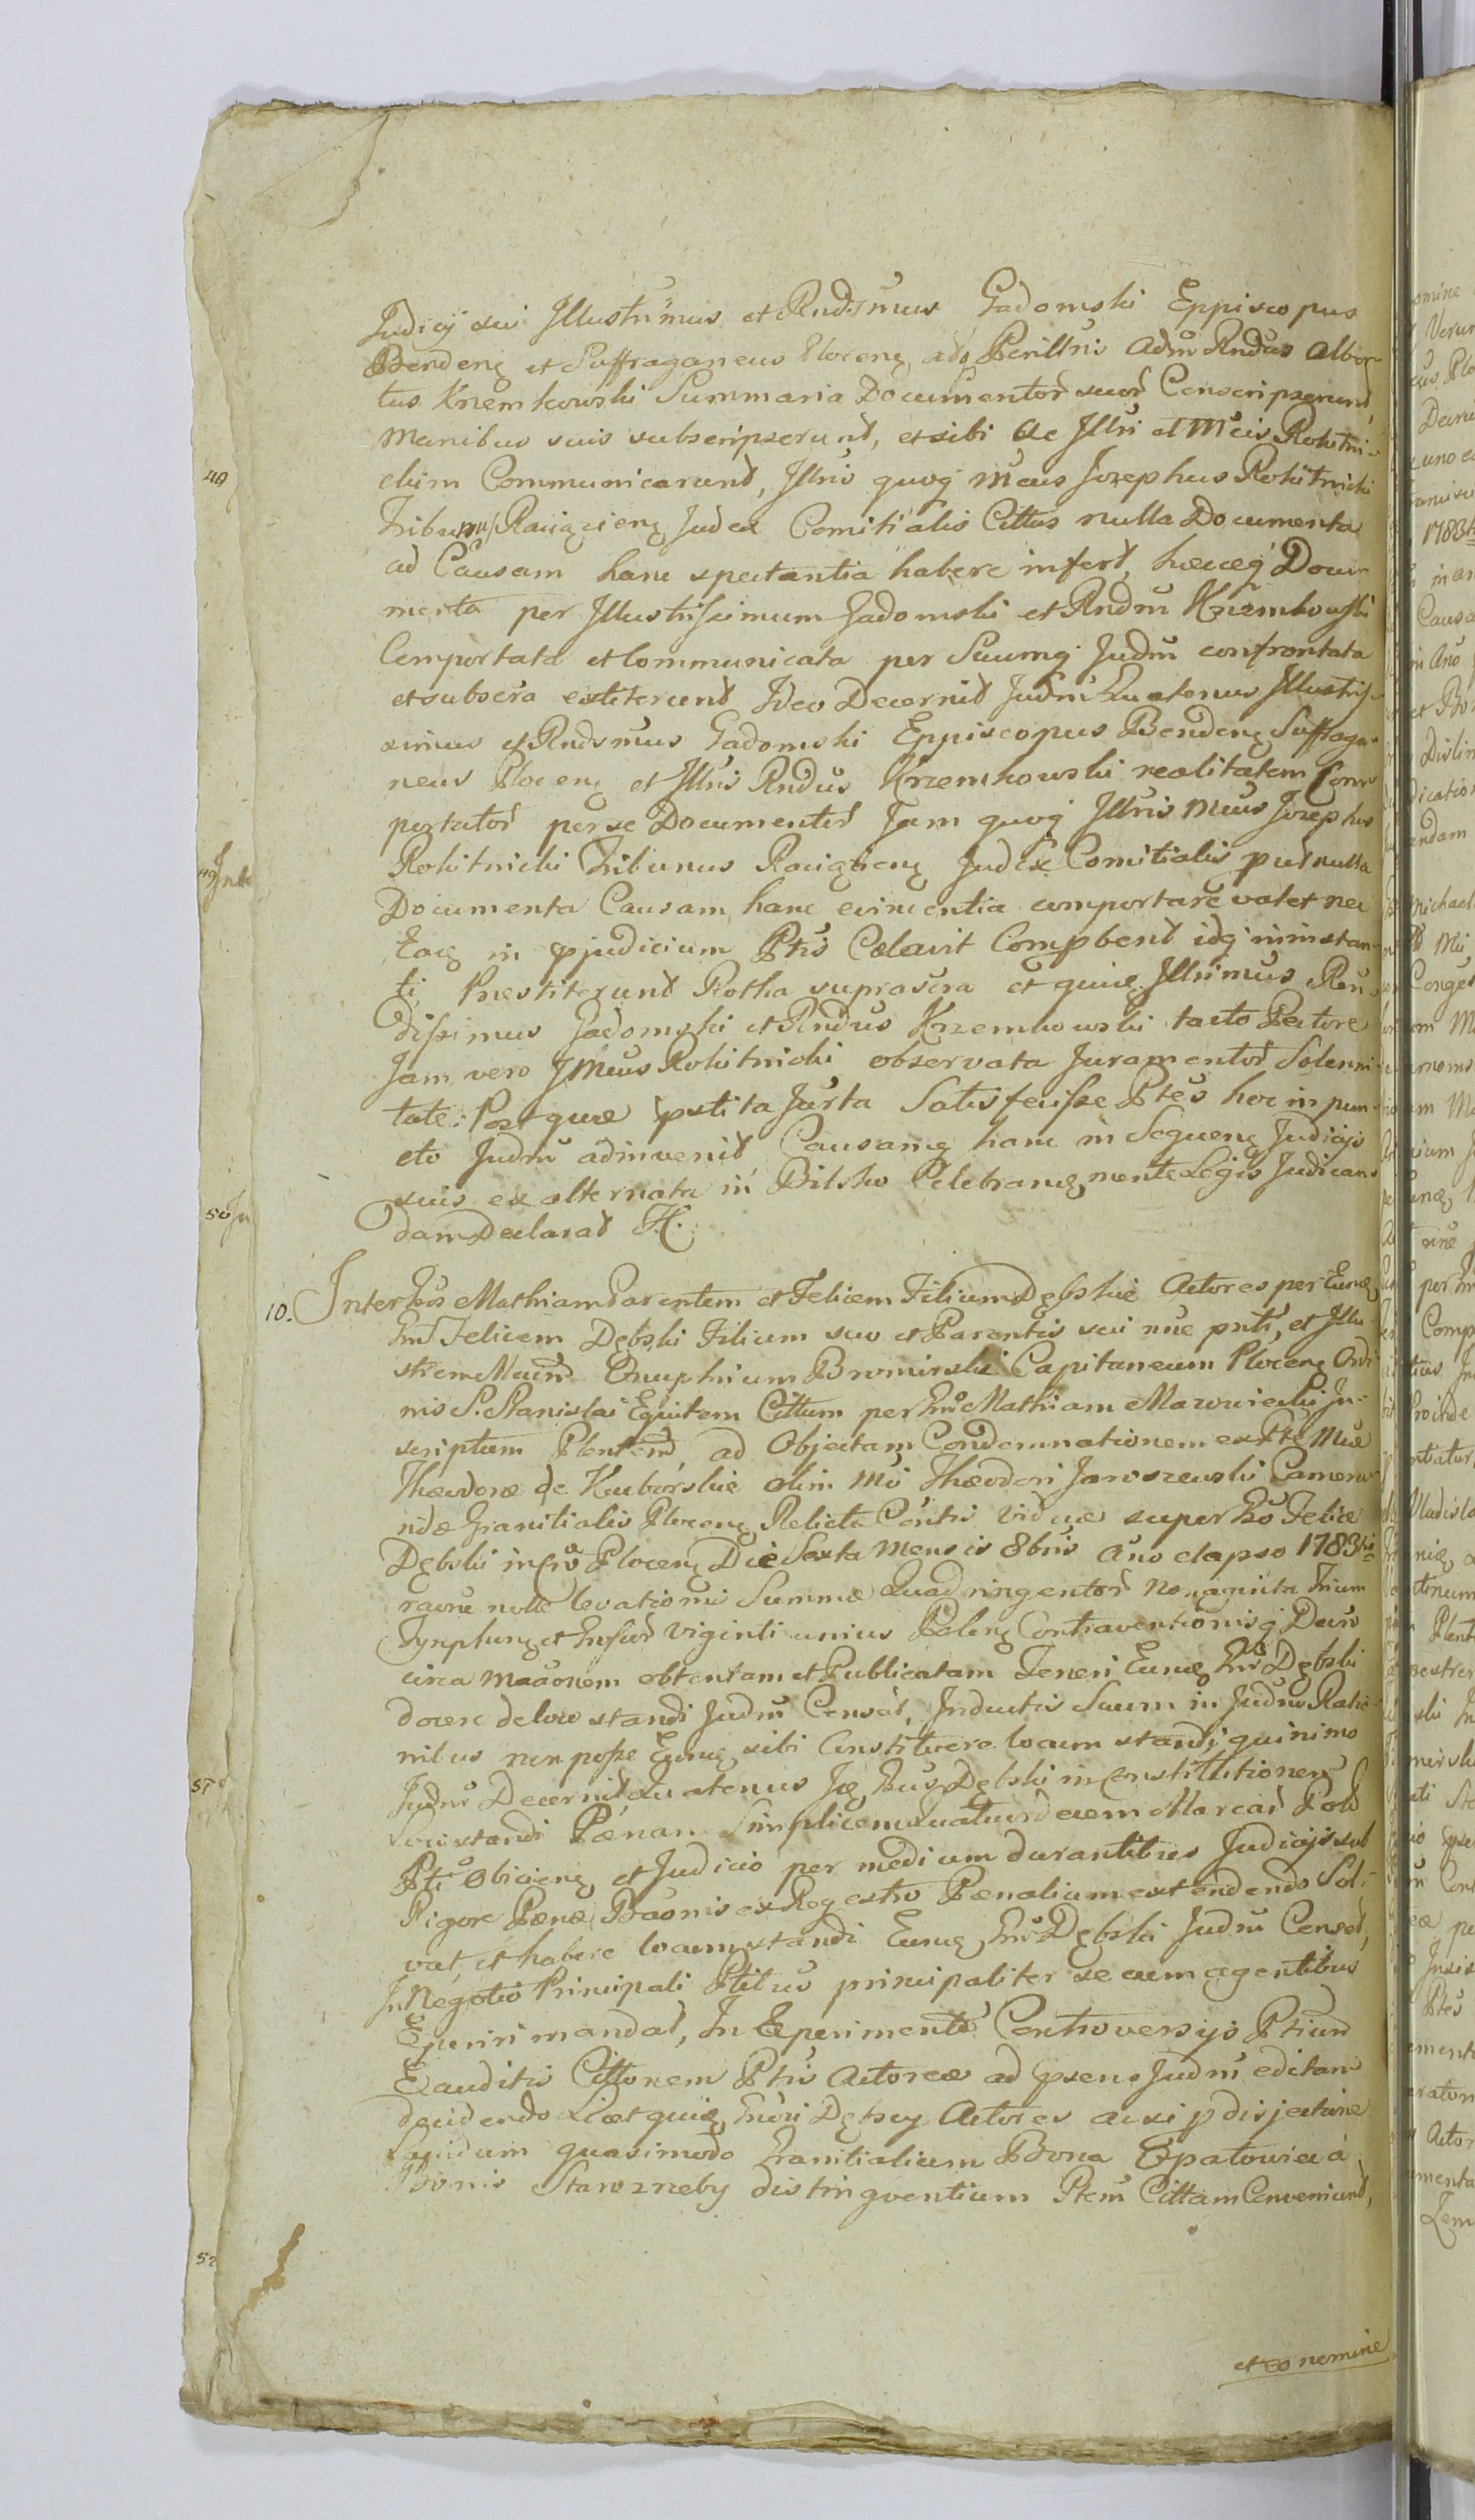 Judicij sui Illustrimus et Rndsmus Gadomski Eppiscopus
Bendeng et Suffraganeus Ploceng, atq Perillris Adm Rndus Alber-
tus Krzemkowski Summaria Documentor suor Conscripserunt
Manibus suis subscripserunt, et sibi ac Illri et Mcis Rokitni-
ckim Communicarunt, Illris quoq Mcus Josephus Rokitnicki
Tribunus Raciązieng Judex Comitialis Cittus nulla Documenta
ad Causam hanc spectantia habere infert, hæcceq Docu-
menta per Illustrissimum Gadomski et Rndm Krzemkowski
Comportata et Communicata per Suumq Judm confrontata
et subscra extiterunt Ideo Decernit Judm Quatenus Illustris-
simus et Rndsmus Gadomski Eppiscopus Bendeng Suffraga-
neus Ploceng et Illris Rndus Krzemkowski realitatem Com-
portator per se Documentor Jam quoq Illris Mcus Josephus
Rokitnicki Tribunus Raciązieng Judex Comitialis quod nulla
Documenta Causam hanc evincentia comportare valet nec
Eaq in pjudicium Ptis Celavit Compbent idq in instan-
ti Præstiterunt Rotha suprascra et quiq Illrimus Reu-
dissimus Gadomski et Rndus Krzemkowski tacto Pectore
Jam vero JMcus Rokitnicki observata Juramentor Solenni-
tate: Post quæ pstita Jurta Satisfecisse Ptes hoc in pun-
cto Judm adinvenit Causamq hanc in Sequeng Judicijs
suis ex alternata in Bilsko Celebranq mente Legis Judican-
dam Declarat H.
10. Inter Gsos Mathiam Parentem et Felicem Filium Dębskie Actores per Eunq
Gnd Felicem Dębski Filium suo et Parentis sui nne pnti, et Illu-
strem Macnd Onuphrium Bromirski Capitaneum Ploceng Ordi-
nis S. Stanislai Equitem Cittum per Gnm Mathiam Mazowiecki In-
scriptum Plentem, ad Objectam Condemnationem ex Pte Mcæ
Theodoræ de Kuborskie olim Mci Theodori Jaroszewski Camera-
ridæ Granitialis Ploceng Relictæ Contis Viduæ super Gso Felice
Dębski in Cro Ploceng Die Sexta Mensis 8bris Ano elapso 1783tio
raone nolle levationis Summæ Quadringentor Nonaginta Trium
Tynphung et Grosor Viginti unius Poleng Contraventionisq Decro
circa Maaonem obtentam et Publicatam Teneri Eunq Gnm Dębski
docere de loco standi Judm Censet, Inductis Suum in Judm Ratio-
nibus non posse Eunq sibi Constituere locum standi quinimo
Judm Decernit Quatenus Jq Gsus Dębski in Constitutionem
Loci standi Pænam Simplicem Quatuordecem Marcar Pold
Pti Obicieng et Judicio per medium durantibus Judicijs sub
Rigore Pænæ Baonis ex Regestro Pænalium extendendo Sol-
vat, et habere locum standi Eunq Gnm Dębski Judm Censet,
In Negotio Principali Ptibus principaliter secum agentibus
Experiri mandat, In Experimento Controversijs Ptium
Exauditis Cittonem Ptis Actoreæ ad psens Judm editam
decidendo Licet quiq Gnosi Dębscy Actores ac si p disjectione
Lapidum quasimodo Granitialium Bona Opatowiec à
Bonis Staroźreby distingventium Ptem Cittam Conveniunt,
et eo nomine